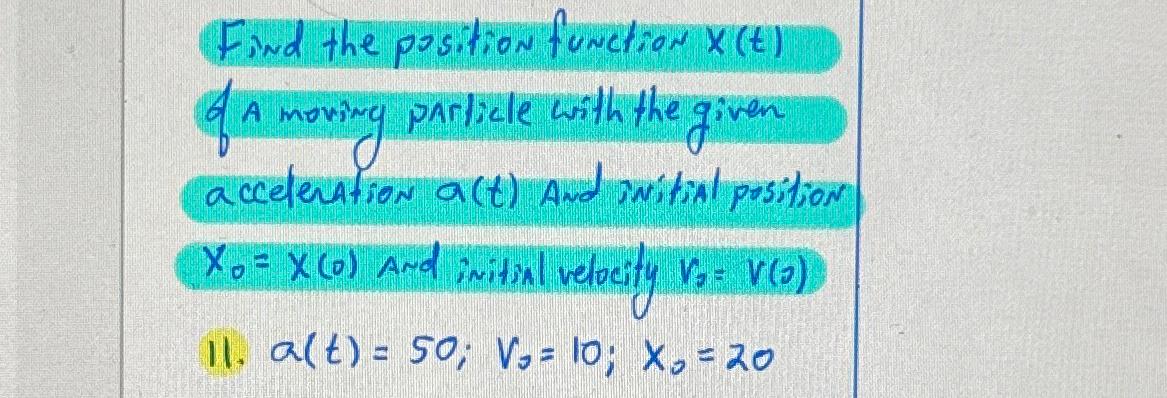 Find the position function x(t)
of A moving particle with the given
acceleration a(t) And initial position
X₀ = X(0) And initial velocity V₀ = V(0)
11. a(t) = 50; V₀ = 10; X₀ = 20